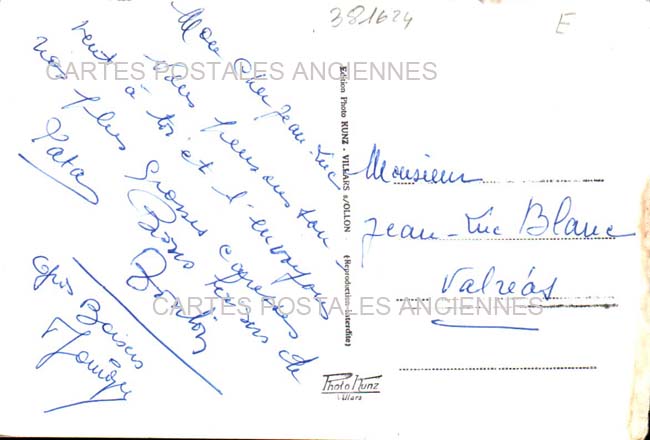 381624
E
CARTES POSTALES ANCIENNES
Mon cher Jean-Luc
nous pensons sou-
vent à toi et t'envoyons
nos plus grosses caresses
Bons baisers de
Tata
Tonton
gros Baisers
Edition Photo KUNZ - VILLARS s/OLLON - (Reproduction interdite)
Monsieur
Jean-Luc Blanc
Valréas
CARTES POSTALES ANCIENNES
Photo Kunz
Villars